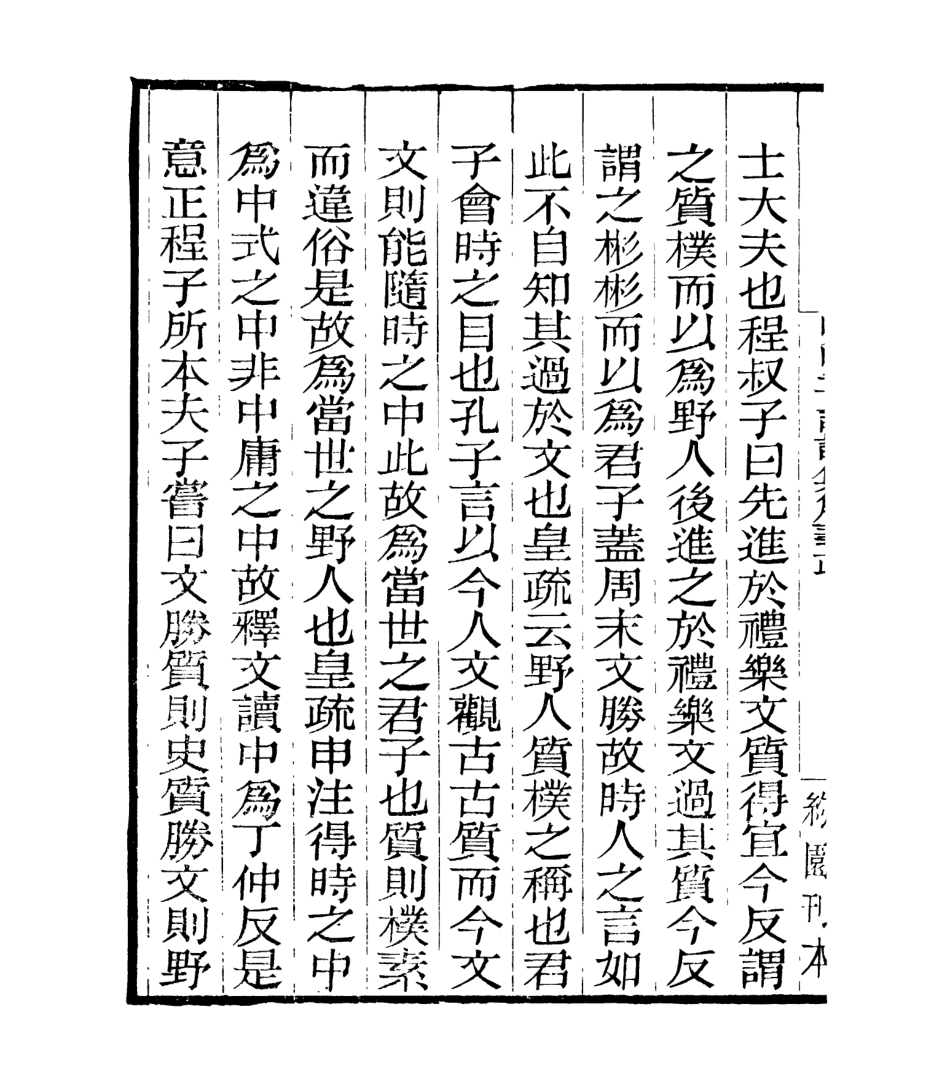 士大夫也程叔子曰先進於禮樂文質得宜今反謂
之質樸而以爲野人後進之於禮樂文過其質今反
謂之彬彬而以爲君子蓋周末文勝故時人之言如
此不自知其過於文也皇疏云野人質樸之稱也君
子會時之目也孔子言以今人文觀古古質而今文
文則能隨時之中此故爲當世之君子也質則樸素
而違俗是故爲當世之野人也皇疏申注得時之中
爲中式之中非中庸之中故釋文讀中爲丁仲反是
意正程子所本夫子嘗曰文勝質則史質勝文則野
園刊本